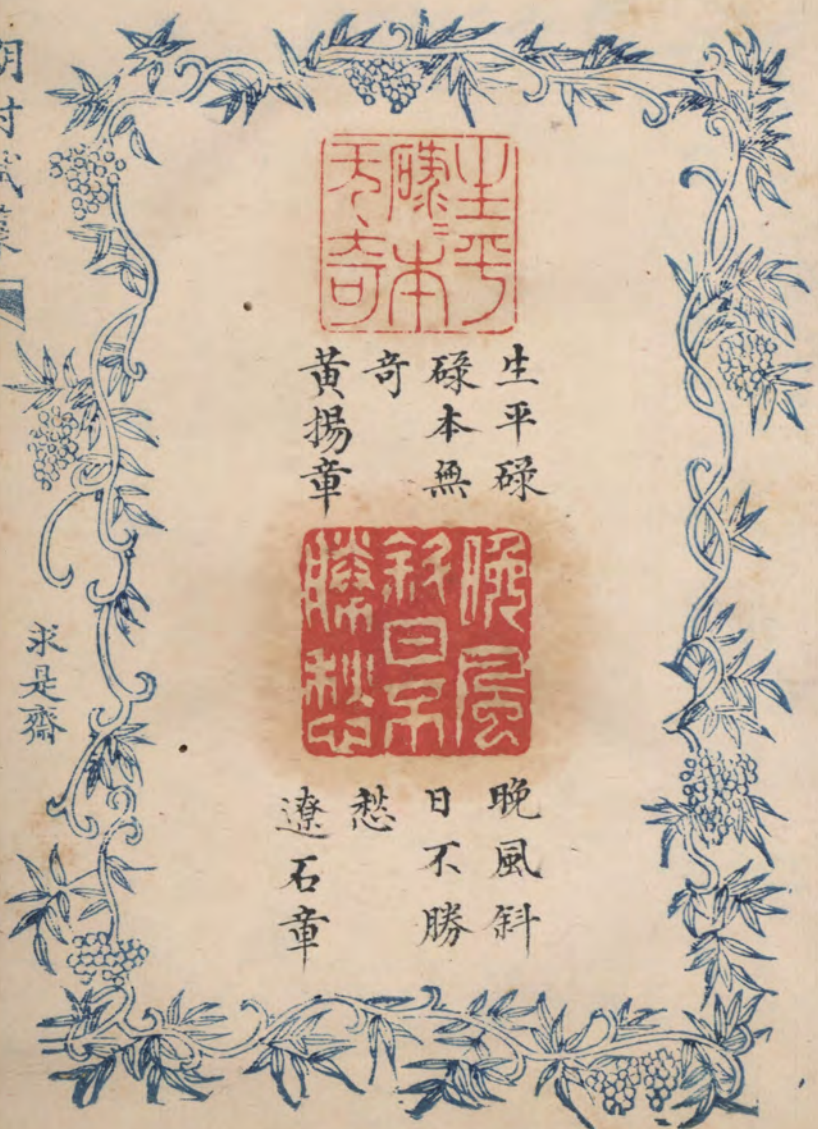 生平
碌〻本
无奇
生平碌
碌本無
奇
黄揚章
晚風
斜日不
勝愁
晚風斜
日不勝
愁
遼石章
求是齋